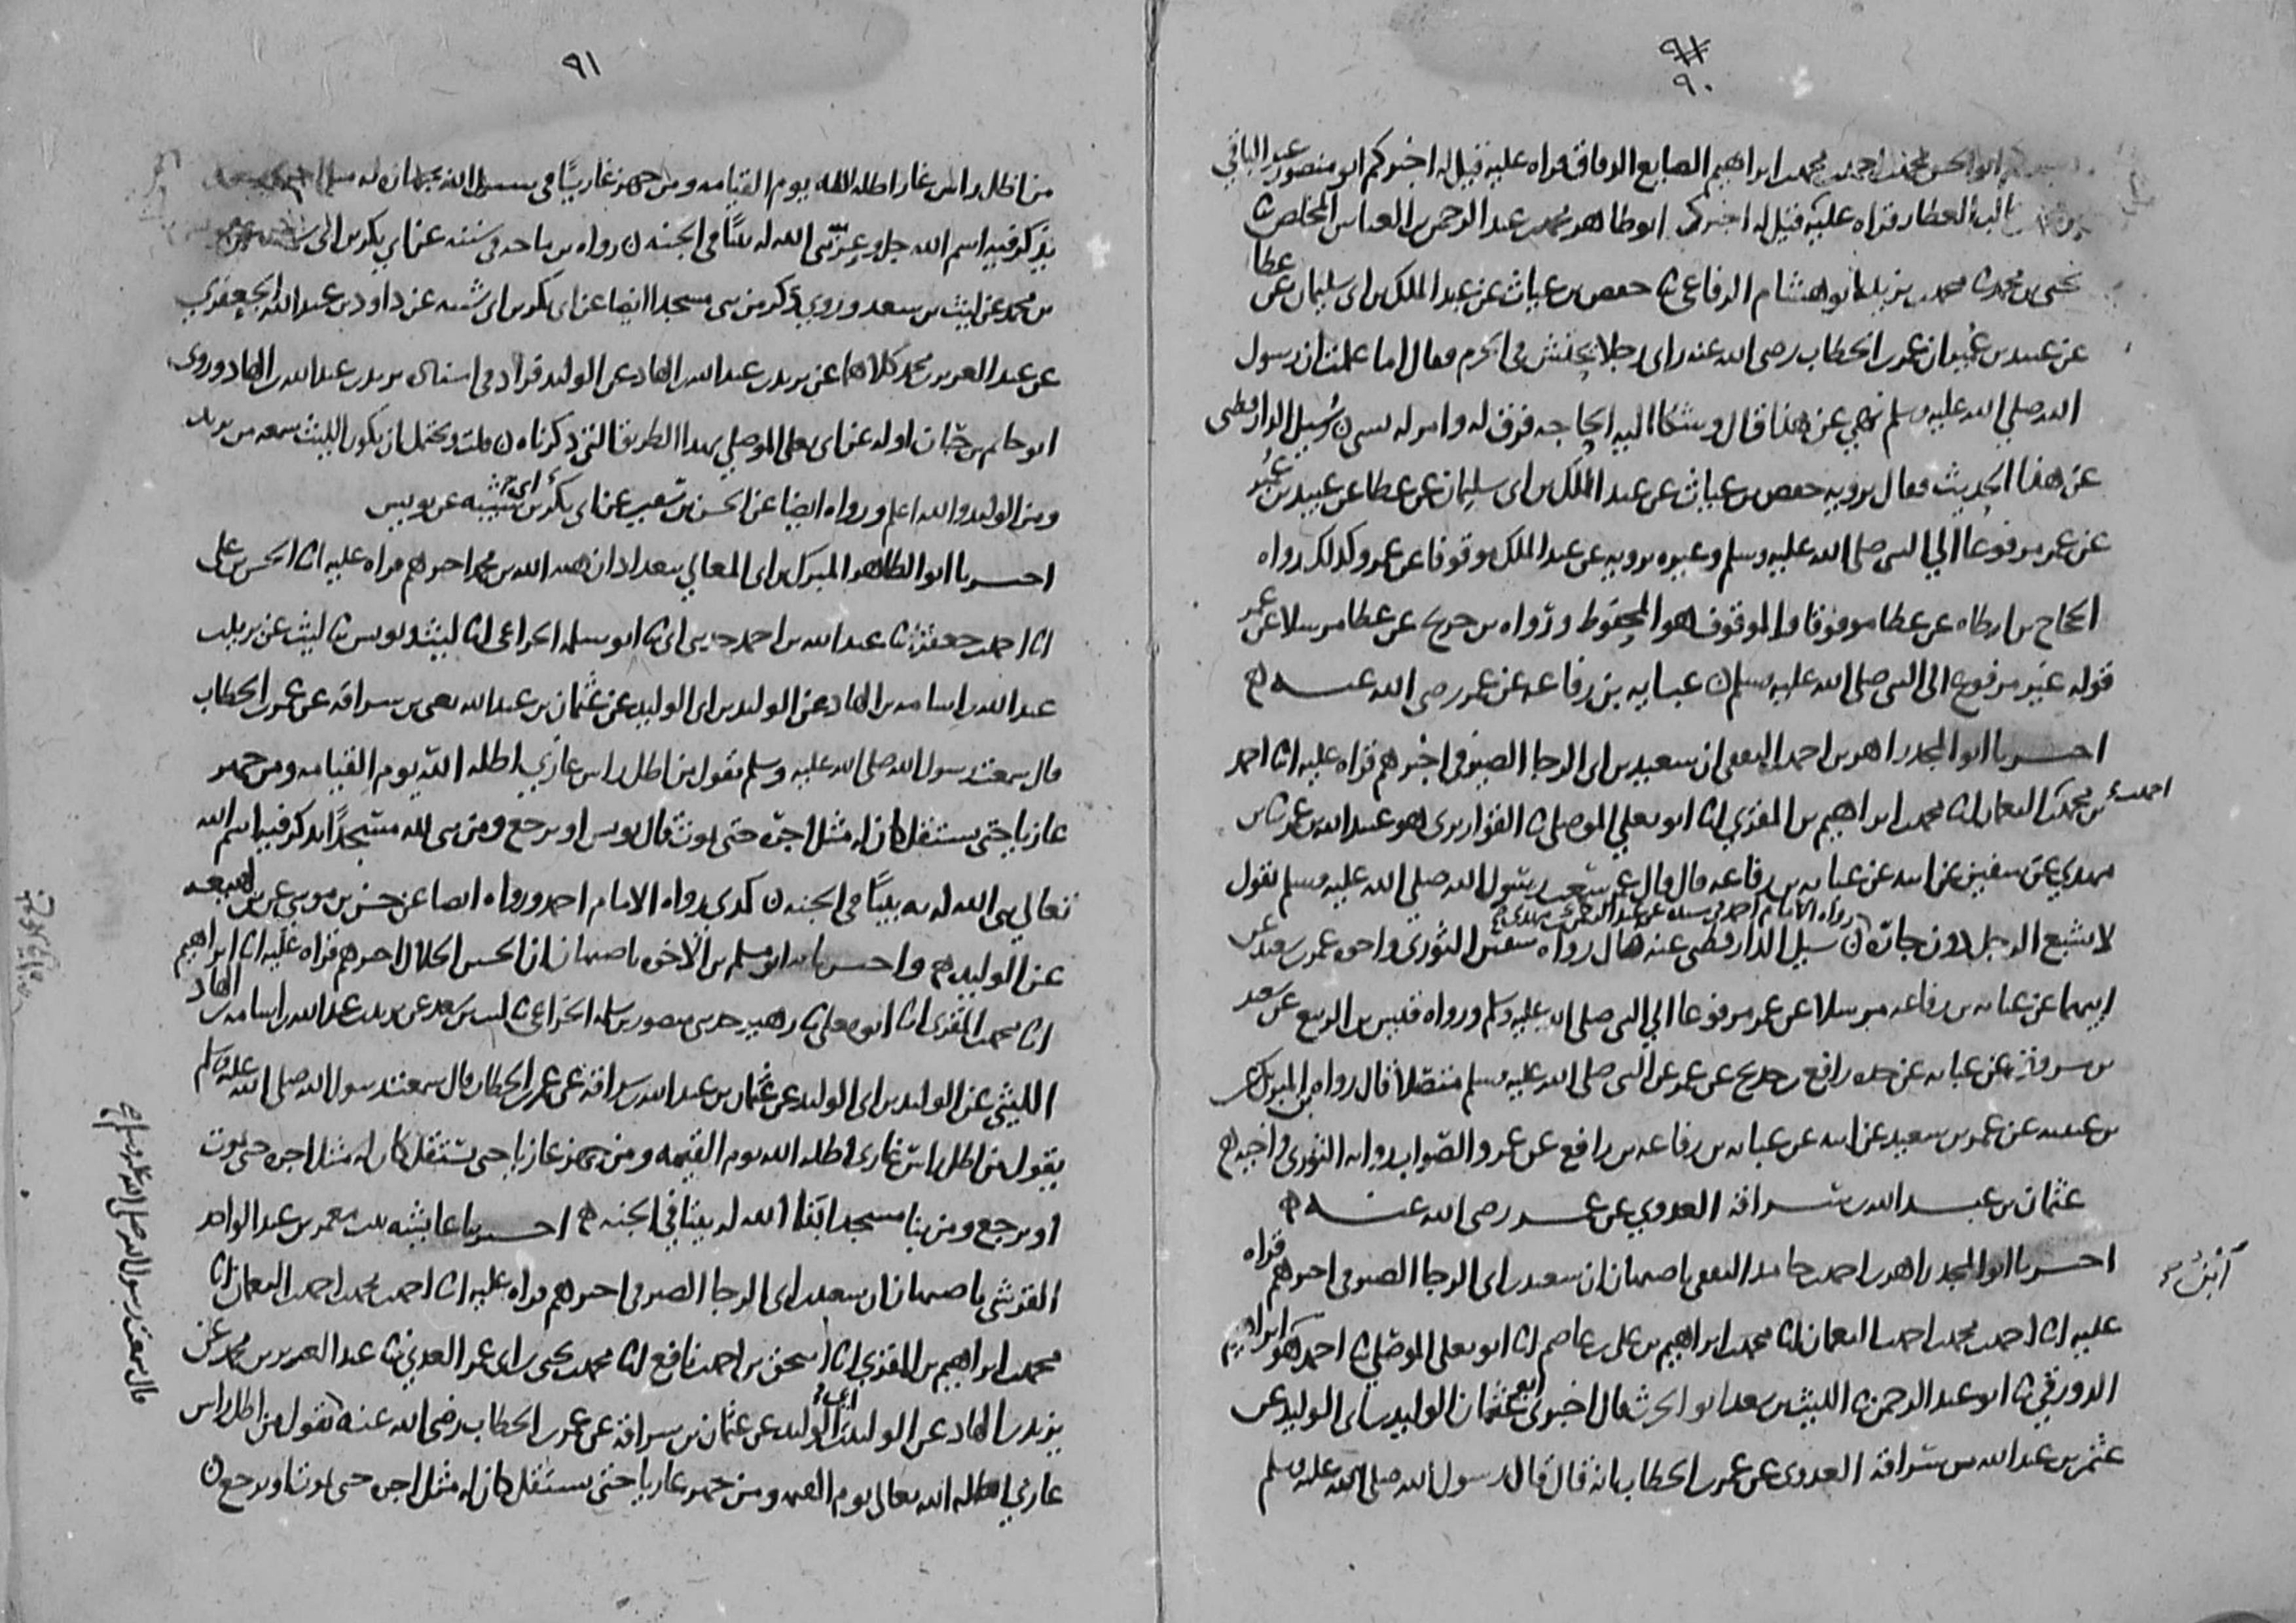 ٩١
٩٠
ابو الحسن محمد بن احمد بن محمد بن ابراهيم الصايغ الوفاق قراه عليه قيل له اخبركم ابو منصور عبد الباقي
العطار قراه عليه قيل له اخبركم ابو طاهر محمد بن عبد الرحمن بن العباس المخلص ثا
يحيى بن محمد ثا محمد بن يزيد ابو هشام الرفاعي ثا حفص بن غياث عن عبد الملك بن ابي سليمان عن عطا
عن عبيد بن عمير ان عمر بن الخطاب رضي الله عنه راى رجلا يحتش في الحرم فقال اما علمت ان رسول
الله صلى الله عليه وسلم نهى عن هذا قال وشكا اليه الحاجه فرق له وامر له بشي ن سيل الدارقطني
عن هذا الحديث فقال يرويه حفص بن غياث عن عبد الملك بن ابي سليمان عن عطا عن عبيد بن عمير
عن عمر مرفوعا الى النبي صلى الله عليه وسلم وغيره يرويه عن عبد الملك موقوفا عن عمر وكذلك رواه
الحجاج بن ارطاه عن عطا موقوفا والموقوف هو المحفوظ ورواه بن جريج عن عطا مرسلا عن عمر
قوله غير مرفوع الى النبي صلى الله عليه وسلم ن عبايه بن رفاعه عن عمر رضي الله عنه
اخبرنا ابو المجد زاهر بن احمد الثقفي ان سعيد بن ابي الرجا الصيرفي اخبرهم قراه عليه انا احمد
بن محمد بن احمد بن النعمان انا محمد بن ابراهيم بن المقري انا ابو يعلى الموصلي ثا القواريري هو عبيد الله بن عمر ثا بن
مهدي عن سفين عن ابيه عن عبايه بن رفاعه قال قال عمر سمعت رسول الله صلى الله عليه وسلم يقول
رواه الامام احمد في مسنده عن عبد الرحمن بن مهدي
لا يشبع الرجل دون جاره ن سيل الدارقطني عنه فقال رواه سفين الثوري واخوه عمر بن سعيد عن
ابيهما عن عبايه بن رفاعه مرسلا عن عمر مرفوعا الى النبي صلى الله عليه وسلم ورواه قيس بن الربيع عن سعيد
بن مسروق عن عبايه عن جده رافع بن خديج عن عمر عن النبي صلى الله عليه وسلم متصلا قال رواه
بن عيينه عن عمر بن سعيد عن ابيه عن عبايه بن رفاعه بن رافع عن عمر والصواب روايه الثوري واخيه
عثمان بن عبد الله بن سراقه العدوي عن عمر رضي الله عنه
اخبرنا ابو المجد زاهر بن احمد بن حامد الثقفي باصبهان ان سعيد بن ابي الرجا الصيرفي اخبرهم قراه
عليه انا احمد بن محمد بن احمد بن النعمان انا محمد بن ابراهيم بن علي بن عاصم انا ابو يعلى الموصلي ثا احمد هو بن ابراهيم
الدورقي ثا ابو عبد الرحمن ثا الليث بن سعد ابو الحرث قال اخبرني الوليد بن ابي الوليد عن
عثمن بن عبد الله بن سراقه العدوي عن عمر بن الخطاب انه قال قال رسول الله صلى الله عليه وسلم
٩١
من اظل راس غاز اظله الله يوم القيامه ومن جهز غازيا في سبيل الله
يذكر فيه اسم الله جل وعز بنى الله له بيتا في الجنه ن رواه بن ماجه في سننه عن ابي بكر بن ابي شيبه
بن محمد عن ليث بن سعد وروي ذكر من بنى مسجدا ايضا عن ابي بكر بن ابي شيبه عن داود بن عبد الله الجعفري
عن عبد العزيز بن محمد كلاهما عن يزيد بن عبد الله بن الهاد عن الوليد فزاد في اسناده يزيد بن عبد الله بن الهاد وروى
ابو حاتم بن حبان اوله عن ابي يعلى الموصلي بهذا الطريق الذي ذكرناه ن قلت ويحتمل ان يكون الليث سمعه من يزيد
ومن الوليد والله اعلم ورواه ايضا عن الحسن بن سفين عن ابي بكر بن ابي شيبه عن يونس
اخبرنا ابو الطاهر المبرك بن ابي المعالي ببغداد ان هبه الله بن محمد اخبرهم قراه عليه انا الحسن بن علي
انا احمد بن جعفر ثا عبد الله بن احمد حدثني ابي ثا ابو سلمه الخزاعي انا ليث ويونس ثا ليث عن يزيد بن
عبد الله بن اسامه بن الهاد عن الوليد بن ابي الوليد عن عثمان بن عبد الله يعني بن سراقه عن عمر بن الخطاب
قال سمعت رسول الله صلى الله عليه وسلم يقول من اظل راس غازي اظله الله يوم القيامه ومن جهز
غازيا حتى يستقل كان له مثل اجره حتى يموت قال يونس او يرجع ومن بنى لله مسجدا يذكر فيه اسم الله
تعالى بنى الله له به بيتا في الجنه ن كذي رواه الامام احمد ورواه ايضا عن حسن بن موسى عن بن لهيعه
عن الوليد واخبرنا به ابو مسلم بن الاخوه باصبهان ان الحسين الخلال اخبرهم قراه عليه انا ابراهيم
انا محمد بن المقري انا ابو يعلى ثا زهير حدثني منصور بن سلمه الخزاعي ثا ليث بن سعد عن يزيد بن عبد الله بن اسامه بن الهاد
الليثي عن الوليد بن ابي الوليد عن عثمان بن عبد الله بن سراقه عن عمر بن الخطاب قال سمعت رسول الله صلى الله عليه وسلم
يقول من اظل راس غازي اظله الله يوم القيمه ومن جهز غازيا حتى يستقل كان له مثل اجره حتى يموت
او يرجع ومن بنا مسجدا بنا الله له بيتا في الجنه اخبرنا عايشه بنت معمر بن عبد الواحد
القرشي باصبهان ان سعيد بن ابي الرجا الصيرفي اخبرهم قراه عليه انا احمد بن محمد بن احمد بن النعمان انا
محمد بن ابراهيم بن المقري انا اسحق بن احمد بن نافع انا محمد بن يحيى بن ابي عمر العدني ثا عبد العزيز بن محمد عن
يزيد بن الهاد عن الوليد بن ابي الوليد عن عثمان بن سراقه عن عمر بن الخطاب رضي الله عنه يقول من اظل راس
غازي اظله الله تعالى يوم القيمه ومن جهز غازيا حتى يستقل كان له مثل اجره حتى يموت او يرجع ن
قال سمعت رسول الله صلى الله عليه وسلم صح